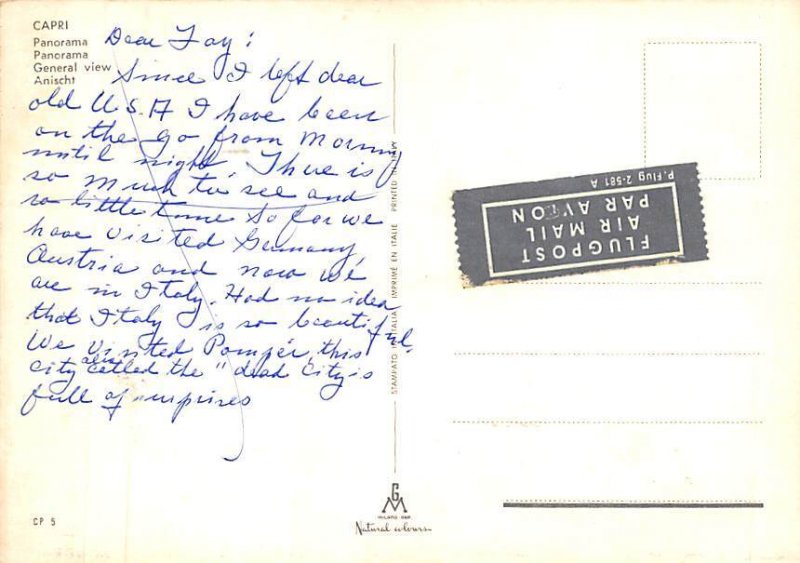 CAPRI
Panorama
Panorama
General view
Anischt
Dear Fay:
Since I left dear
old U.S.A I have been
on the go from Morning
until night. There is
so much to see and
so little time So far we
have visited Germany
Austria and now we
are in Italy. Had no idea
that Italy is so beautiful.
We visited Pompei, this
city also called the "dead City is
full of surprises
CP 5
STAMPATO IN ITALIA IMPRIMÉ EN ITALIE PRINTED IN ITALY
GM
MILANO DEP.
Natural colours
P. Flug 2-581 A
FLUGPOST
AIR MAIL
PAR AVION